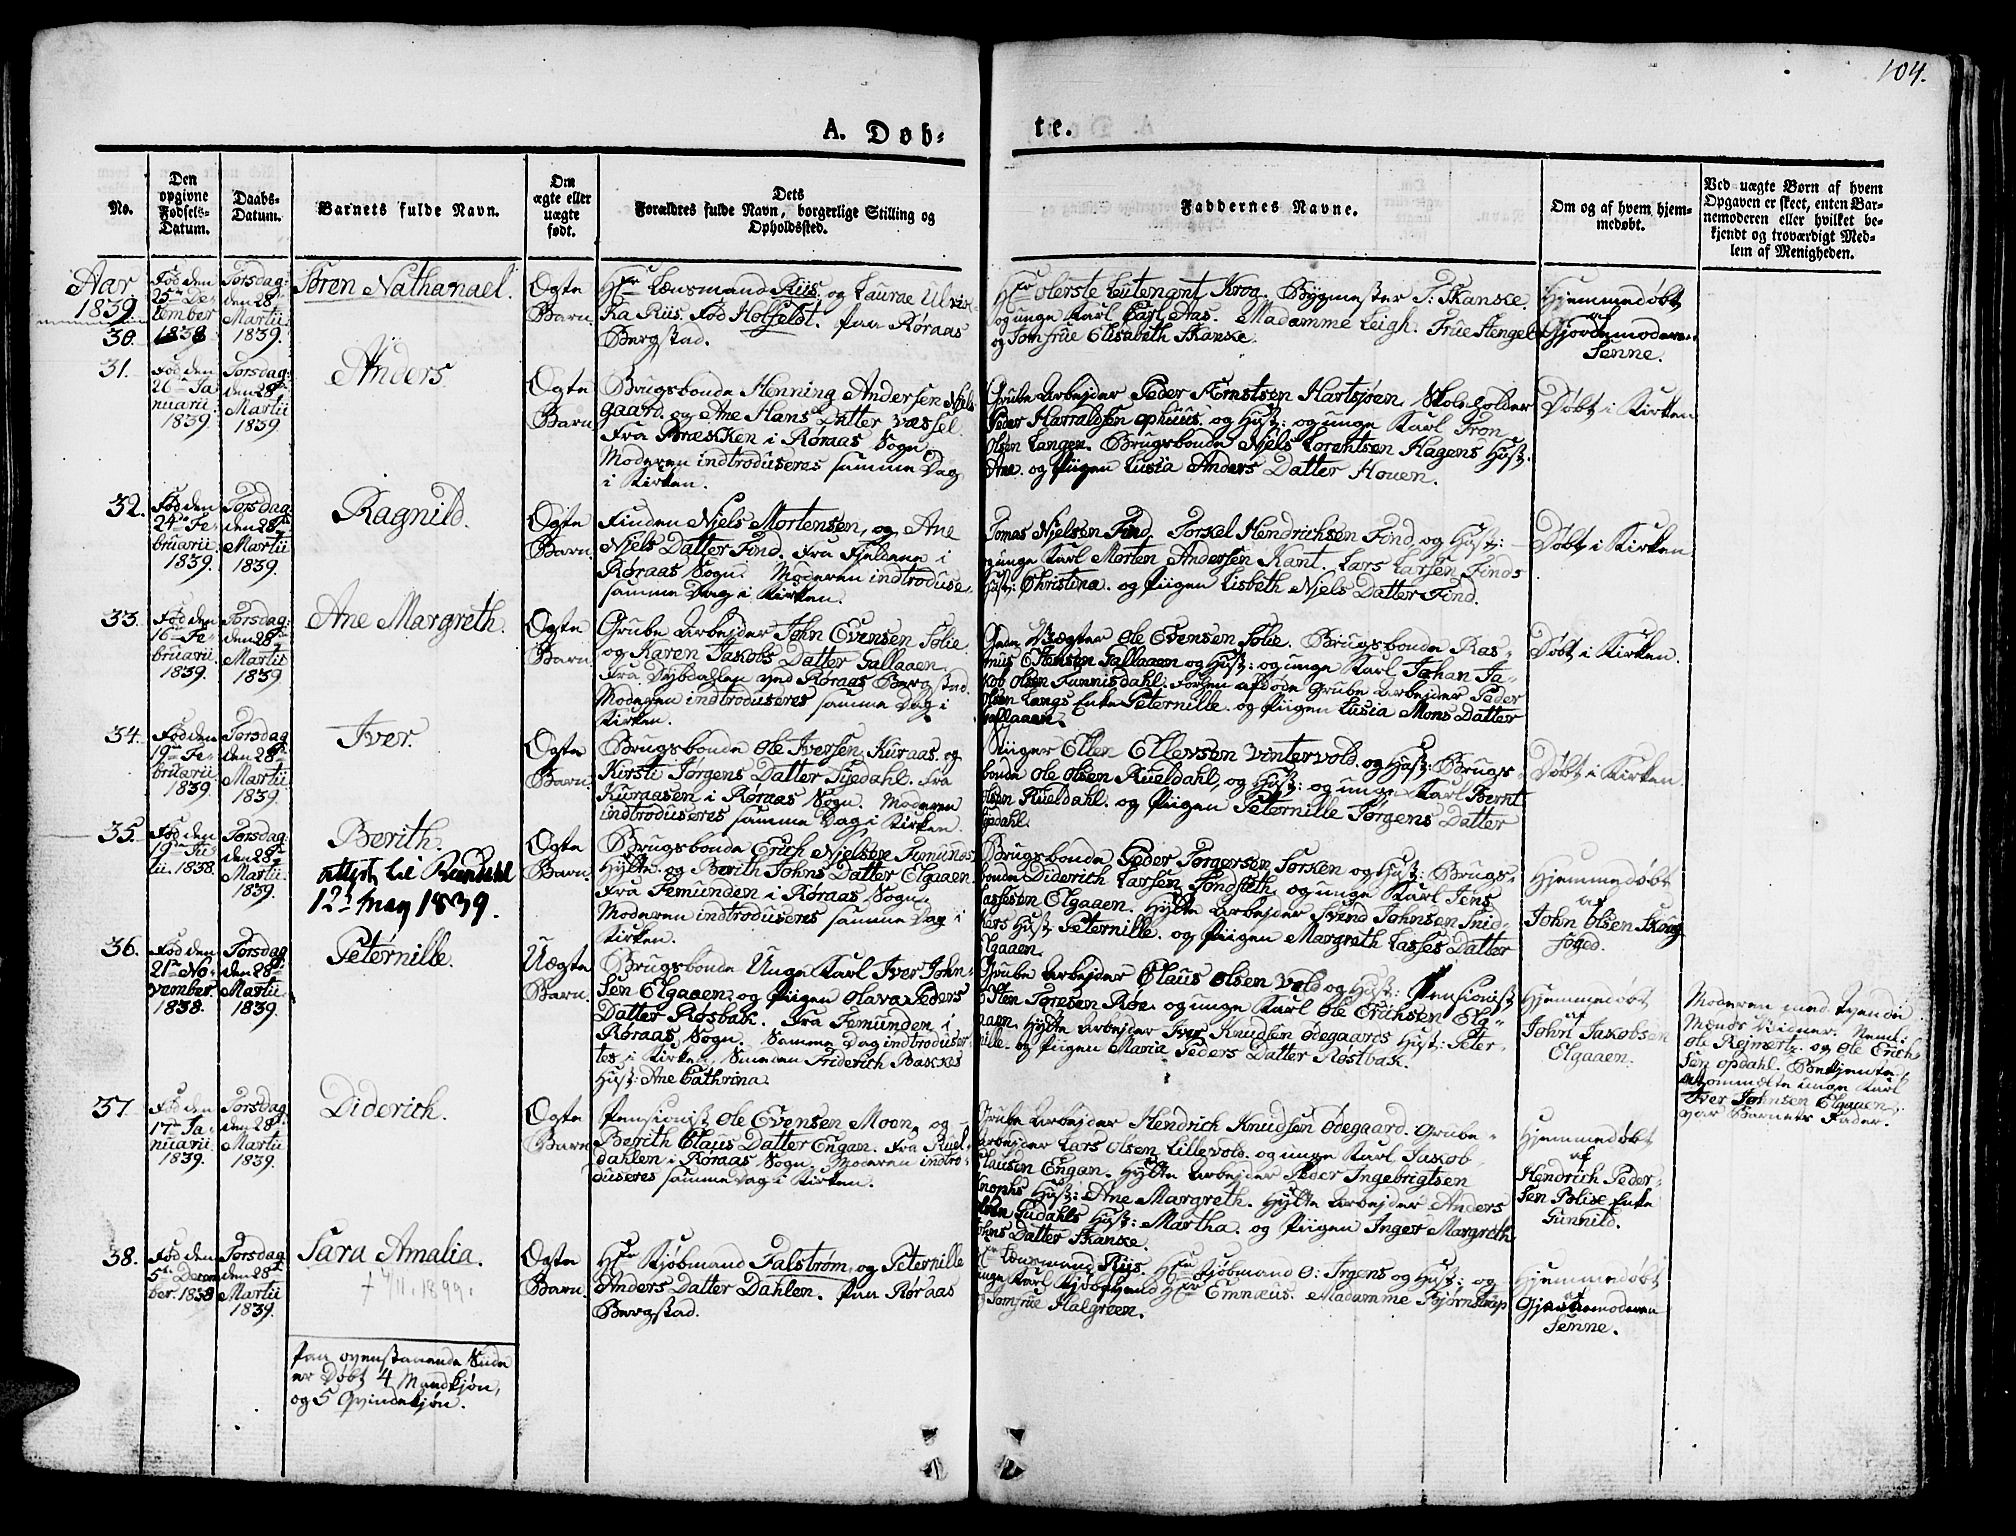 104.
A. Døb-
te.
No.
Den
opgivne
Fødsels-
Datum.
Daabs-
Datum.
Barnets fulde Navn.
Om
ægte eller
uægte
født.
Dets
Forældres fulde Navn, borgerlige Stilling og
Opholdssted.
Faddernes Navne.
Om og af hvem hjem-
medøbt.
Ved uægte Børn af hvem
Opgaven er skeet, enten Bar-
nemoderen eller hvilket be-
kjendt og troværdigt Med-
lem af Menigheden.
Aar
1839.
30.
Fød den
25de De-
cember
1838
Torsdag:
den 28de
Martii
1839.
Søren Nathanael.
Ægte
Barn.
Hr Lænsmand Riis, og Laurae Ulrik-
ka Riis. Fød Holfeldt. Paa Røraas
Bergstad.
Hr Oberste Leutenant Krog. Bygmester J: Skanske
og unge Karl Carl Aas. Madamme Leigh. Frue Stengel
og Jomfrue Elisabeth Skanske.
Hjemmedøbt
af
Gjordemoderen
Senne.
31.
Fød den
26de Ja
nuarii
1839.
Torsdag:
den 28de
Martii
1839.
Anders.
Ægte
Barn.
Brugsbonde Henning Andersen Njels
gaard. og Ane Hans Datter Væssel.
Fra Brækken i Røraas Sogn.
Moderen indtroduseres samme Dag
i Kirken.
Grube Arbejder Peder Ernstsen Hartsjøen. Skoleholder
Peder Harraldsen Ophuus. og Hust: og unge Karl Tron
Olsen Langen. Brugsbonde Njels Lorentsen Hagens Hust:
Ane. og Piigen Lusia Anders Datter Hoven.
Døbt i Kirken
32.
Fød den
24de Fe-
bruarii
1839.
Torsdag
den 28de
Martii
1839.
Ragnild.
Ægte
Barn.
Finden Njels Mortensen, og Ane
Njels Datter Find. Fra Fjeldene i
Røraas Sogn. Moderen indtroduse.
samme Dag i Kirken.
Tomas Njelsen Find. Torkel Hendrichsen Find, og Hust:
og unge Karl Morten Andersen Kant. Lars Larsen Finds
Hust: Christina. og Piigen Lisbeth Njels Datter Find.
Døbt i Kirken
33.
Fød den
16de Fe-
bruarii
1839.
Torsdag:
den 28de
Martii
1839.
Ane Margreth.
Ægte
Barn.
Grube Arbejder John Evensen Solie.
og Karen Jakobs Datter Gallaaen.
Fra Dybdallen ved Røraas Bergstad.
Moderen indtroduseres samme Dag i
Kirken.
Vægter Ole Evensen Solie. Brugsbonde Ras-
mus Estensen Gallaaen og Hust: og unge Karl Johan Ja-
kob Olsen Funnisdahl. afdøde Grube Arbejder Peder
Olsen Langs Enke Peternille. og Piigen Lusia Mons Datter
Gallaaen.
Døbt i Kirken.
34.
Fød den
19de Fe-
bruarii
1839.
Torsdag
den 28de
Martii
1839.
Iver.
Ægte
Barn.
Brugsbonde Ole Iversen Kuraas. og
Kirsti Jørgens Datter Fra
Kuraasen i Røraas Sogn. Moderen
indtroduseres samme Dag i Kirken.
Stiiger Ellen Ellevsen Vintervold. og Hust: Brugs
bonde Ole Olsen Rueldahl, og Hust: og unge Karl Bernt
Olsen Rueldahl. og Piigen Peternille Jørgens Datter
Døbt i Kirken.
35.
Fød den
lii. 1838.
Torsdag:
den 28de
Martii
1839.
Berith.
12te may 1839.
Ægte
Barn.
Brugsbonde Erich Njelsen Femunds
Hytte. og Berith Johns Datter Elgaaen.
Fra Femunden i Røraas Sogn.
Moderen indtroduseres samme Dag i
Kirken.
Brugsbonde Peder Torgersen Sorken og Hust: Brugs-
bonde Diderich Larsen Sondsteth, og unge Karl Jens
Lassesen Elgaaen. Hytte Arbejder Svend Johnsen Snid-
kers Hust: Peternille. og Piigen Margreth Lasses Datter
Elgaaen.
Hjemmedøbt
af
John Olsen Skoug
foged.
36.
Fød den
21de No-
vember.
1838.
Torsdag
den 28de
Martii
1839.
Peternille.
Uægte
Barn.
Brugsbonde Unge Karl Iver John-
sen Elgaaen, og Piigen Olava Peders
Datter Røsbak. Fra Femunden i
Røraas Sogn. Samme Dag indtroduser-
tes i Kirken, Smeden Friderich Bakkes
Hust: Ane Cathrina.
Grube Arbejder Claus Olsen Vold og Hust: Pensionist
Østen Toresen Røe. og unge Karl Ole Erichsen Elg-
aaen. Hytte Arbejder Iver Knudsen Ødegaards Hust: Peter-
nille. og Piigen Maria Peders Datter Rostbak.
Hjemmedøbt
af
John Jakobsen
Elgaaen.
Moderen med tvende
Mænds Vidner. Neml:
Ole Rejmertz og Ole Erich-
sen Opdahl. Bekjente
at ommælte unge Karl
Iver Johnsen Elgaaen.
var Barnets Fader.
37.
Fød den
17de Ja-
nuarii.
1839.
Torsdag
den 28de
Martii
1839.
Diderich.
Ægte
Barn.
Pensionist Ole Evensen Moen, og
Berith Claus Datter Engan. Fra Ruel-
dahlen i Røraas Sogn. Moderen indtro-
duseres samme Dag i Kirken.
Grube Arbejder Hendrich Knudsen Ødegaard. Grube-
arbejder Lars Olsen Lillevold. og unge Karl Jakob
Clausen Engan. Hytte Arbejder Peder Ingebrigtsen
Knophs Hust: Ane Margreth. Hytte Arbejder Anders
Gudahls Hust: Martha. og Piigen Inger Margreth
Johns Datter Skanske.
Hjemmedøbt
af
Hendrich Peder-
sen Polise Enke
Gunnild.
38.
Fød den
5te Decem
ber. 1838
Torsdag
den 28de
Martii
1839.
Sara Amalia.
† 4/11. 1899.
Ægte
Barn.
Hr Kjøbmand Falstrøm, og Peternille
Anders Datter Dahlen. Paa Røraas
Bergstad.
Hr Lænsmand Riis. Hr Kjøbmand O: Irgens og Hust: og
unge Karl Kjøbsvend Hr Emnæus. Madamme Bjørnstrup
og Jomfrue Halgreen.
Hjemmedøbt
af
Gjordemoderen
Senne.
Paa ovenstaaende Siide
er Døbt 4 Mandkjøn,
og 5 Qvindekjøn.